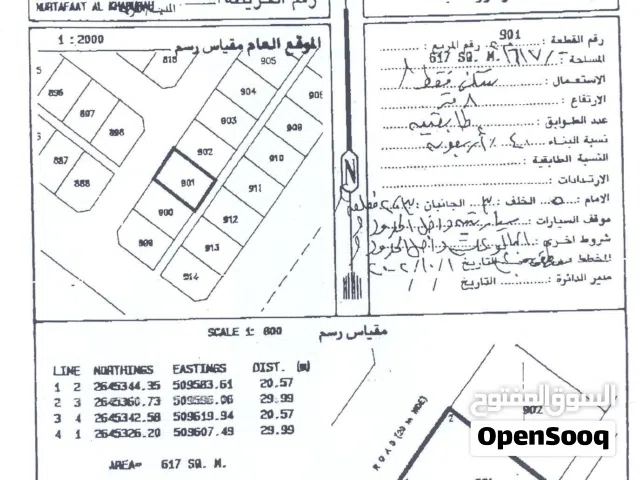 MURTAFAAT AL KHABURAH
1 : 2000
الموقع العام مقياس رسم
رقم القطعة : 901 رقم المربع :
المساحة : 617 SQ. M.
الاستعمال : سكني فقط
الارتفاع : ٨ متر
عدد الطوابق : طابقين
نسبة البناء : ٤٠ ٪ أربعون
النسبة الطابقية :
الارتدادات :
الامام : ٥ الخلف : ٣ الجانبان :
موقف السيارات : داخل الحدود
شروط اخرى : داخل الحدود
المخطط التاريخ
مدير الدائرة : التاريخ / /
N
815
896
897
898
887
888
905
904
903
902
901
900
899
909
910
911
912
913
914
SCALE 1: 600
مقياس رسم
LINE NORTHINGS EASTINGS DIST. (m)
1 2 2645344.35 509583.61 20.57
2 3 2645360.73 509596.06 29.99
3 4 2645342.58 509619.94 20.57
4 1 2645326.20 509607.49 29.99
AREA= 617 SQ. M.
ROAD (20 m WIDE)
2
902
السوق المفتوح
OpenSooq